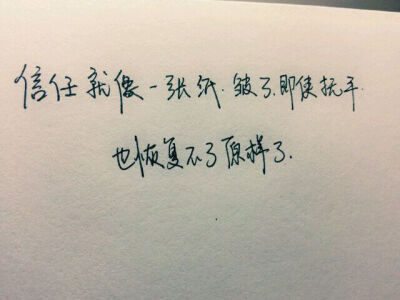 信任就像一张纸.皱了.即使抚平.
也恢复不了原样了.